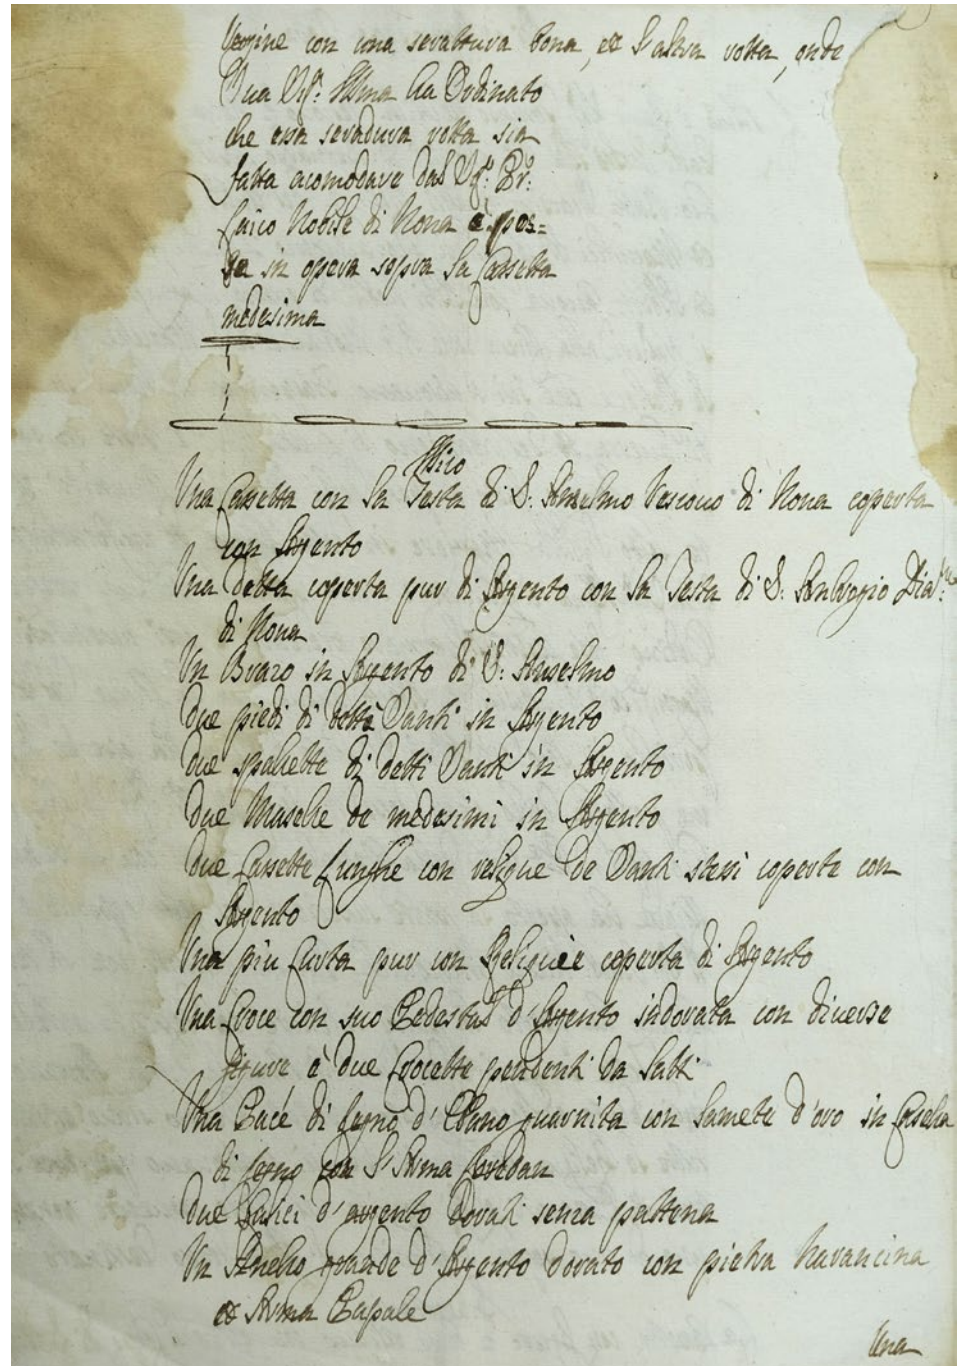 Vergine con una serattura bona, et l'altra rotta, onde
Sua Sig:ª Illma ha Ordinato
che essa seradura rotta sia
fatta acomodare dal Sig:r Dr:
Luico Nobile di Nona è pos=
ta in opera sopra la Cassetta
medesima
Una Cassetta con la Testa di S: Anselmo Vescouo di Nona coperta
con Argento
Una detta coperta pur di Argento con la Testa di S: Ambrogio Diac:
di Nona
Un Brazo in Argento di S: Anselmo
due piedi di detti Santi in Argento
due spalette di detti Santi in Argento
due Maselle de medesimi in Argento
due Cassette Lunghe con relique de Santi stessi coperte con
Argento
Una piu Curta pur con Reliquie coperta di Argento
Una Croce con suo Pedestal d'Argento indorata con diuerse
figure è due Crocette pendenti da latti
Una Pace di legno d'Ebano guarnita con lamete d'oro in Casella
di legno con l'Arma Loredan
due Calici d'argento dorati senza pattena
Un Anello grande d'Argento dorato con pietra
et Arma Papale
Una